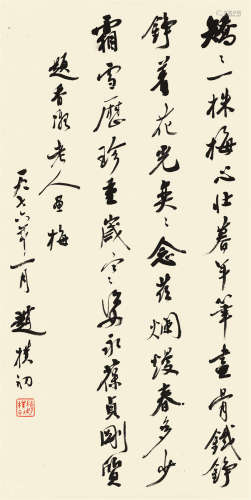 矯〻一株梅心壯暮年筆畫骨鐵錚
錚著花光奕〻念茲爛熳春多少
霜雪歷珍重歲寒姿永葆貞剛質
題香凝老人畫梅
一九七六年一月 趙樸初